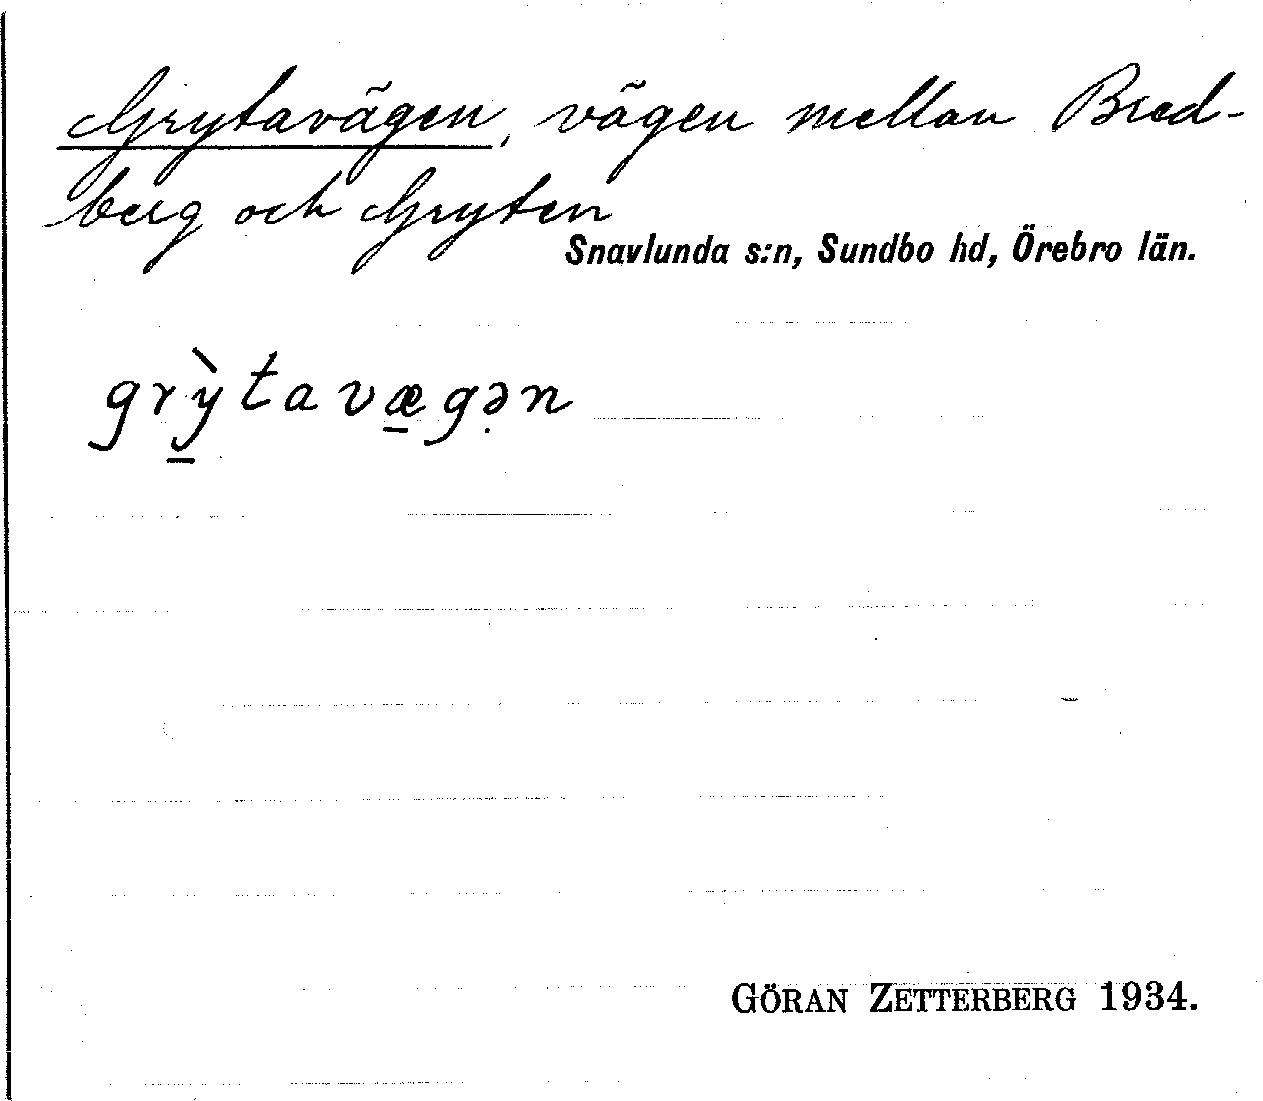 Grytavägen, vägen mellan Bred-
berg och Gryten
Snavlunda s:n, Sundbo hd, Örebro län.
grỳ̠tavæ̠gə̣n
GÖRAN ZETTERBERG 1934.